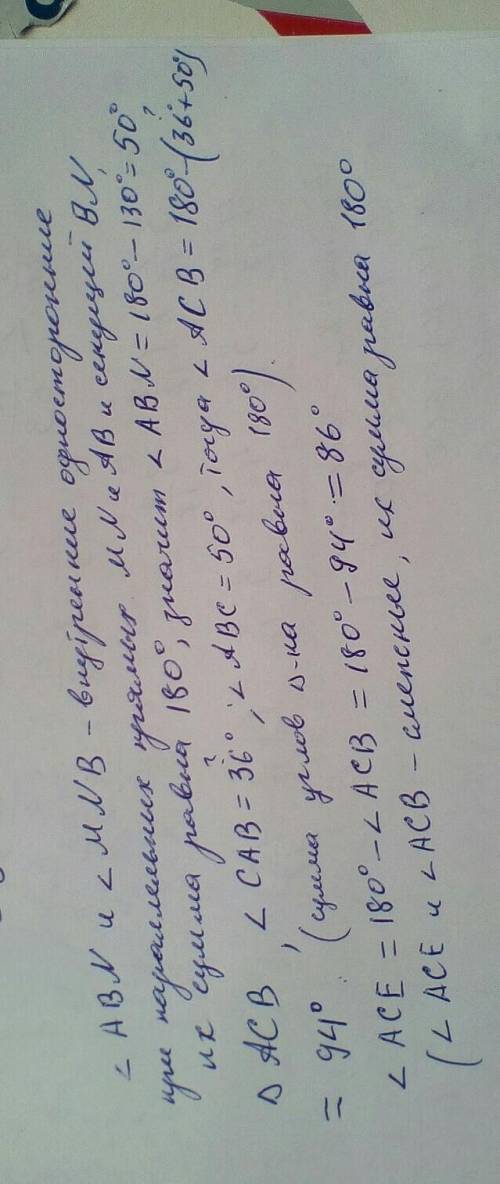 ∠ ABN и ∠ MNB - внутренние односторонние
при параллельных прямых MN и AB и секущей BN,
их сумма равна 180°, значит ∠ ABN = 180° - 130° = 50°
Δ ACB ∠ CAB = 36°, ∠ ABC = 50°, тогда ∠ ACB = 180° - (36° + 50°)
= 94°. (сумма углов Δ-ка равна 180°).
∠ ACE = 180° - ∠ ACB = 180° - 94° = 86°
(∠ ACE и ∠ ACB - смежные, их сумма равна 180°